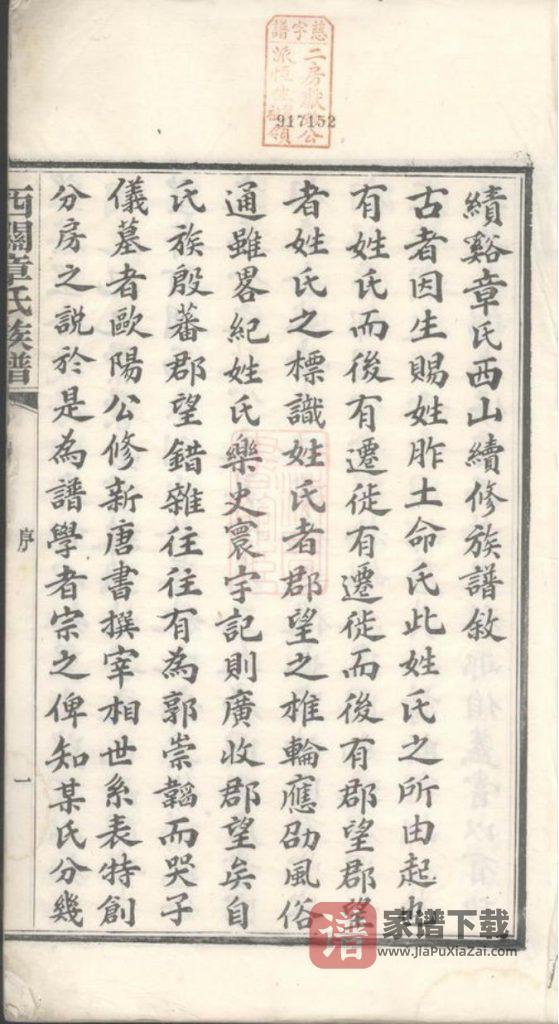 慈字譜
二房獻公
派恆生領
917152
績谿章氏西山續修族譜敘
古者因生賜姓胙土命氏此姓氏之所由起也
有姓氏而後有遷徙有遷徙而後有郡望郡望
者姓氏之標識姓氏者郡望之椎輪應劭風俗
通雖畧紀姓氏樂史寰宇記則廣收郡望矣自
氏族殷蕃郡望錯雜往往有為郭崇韜而哭子
儀墓者歐陽公修新唐書撰宰相世系表特創
分房之說於是為譜學者宗之俾知某氏分幾
西關章氏族譜
序
一
譜
家谱下载
www.JiaPuXiaZai.com